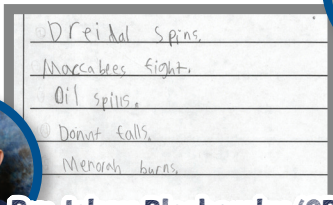 Dreidal spins.
Maccabees fight.
Oil spills.
Donut falls.
Menorah burns.